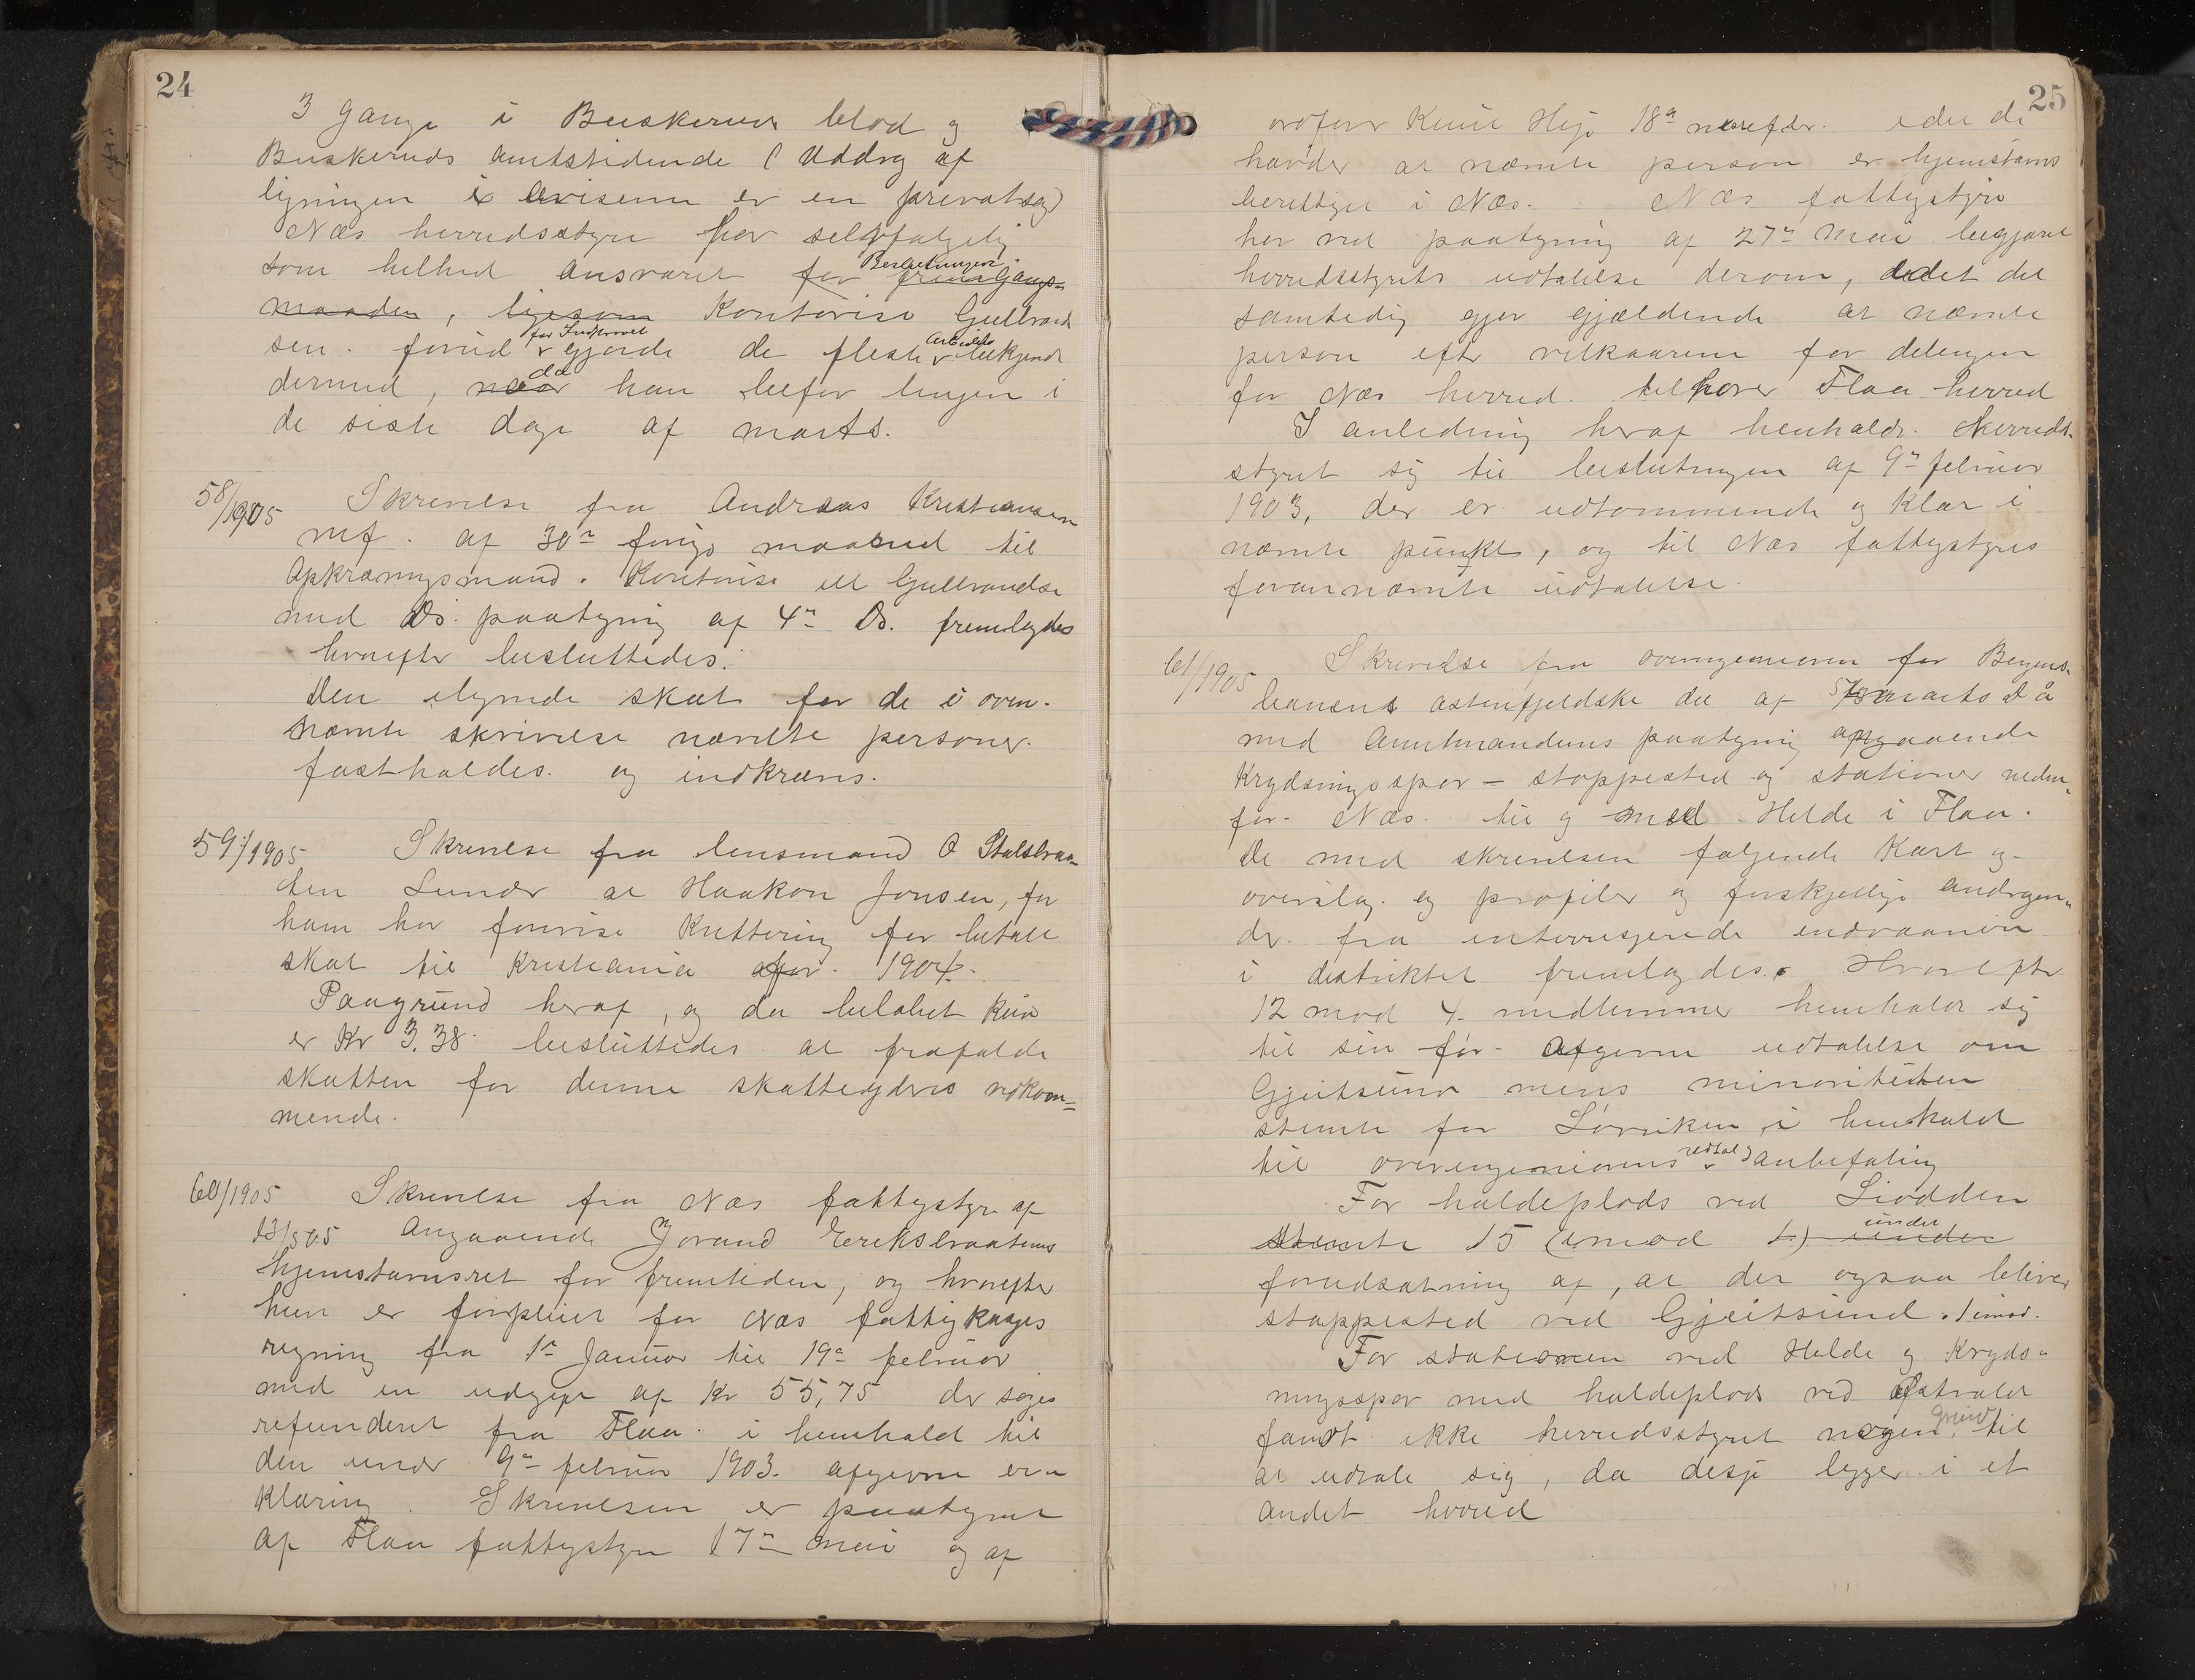 24
3 gange i Buskeruds blad og
Buskeruds amtstidende (Uddrag af
ligningen i aviserne er en privatsag)
Næs herredsstyre har selvfølgelig
som helhed ansvaret for Beslutningen fremgangs-
maaden, ligesom Kontorist Gulbrand
sen. forud for Indkrævet gjorde de fleste Arbeids bekjendt
dermed, naar da han befor bygen i
de siste dage af marts.
58/1905 Skrivelse fra Andreas Kristiansen
mf. af 30te forrige maaned til
Opkrævningsmand. Kontorist Gulbrandse
med Ds. paategning af 4de Ds. fremlagdes
hvorefter besluttedes.
Den ilignede skat for de i oven-
nævnte skrivelse nævnte personer
fastholdes. og indkræves.
59/1905 Skrivelse fra lensmand O Stalsbraa-
ten Sunde at Haakon Jonsen, for
ham har forevise Kvittering for betalt
skat til Kristiania for 1904.
Paagrund heraf, og da beløbet kun
er Kr 3.38 besluttedes at frafalde
skatten for denne skatteyders vedkom=
mende.
60/1905 Skrivelse fra Næs fattigstyre af
13/5 05 angaaende Jorand Eriksbraatens
hjemstavnsret for fremtiden, og hvorefter
hun er forpleiet for Næs fattigkasses
regning fra 1ste Januar til 19de februar
med en udgift af Kr 55,75 der søges
refunderet fra Flaa i henhold til
den under 9de februar 1903 afgivne er-
klæring. Skrivelsen er paategnet
af Flaa fattigstyre 17de mai og af
25
ordfører Knut 18de næstefter. idet de
hævder at nævnte person er hjemstavns
berettiget i Næs. Næs fattigstyre
har ved paategning af 27de Mai begjæret
herredsstyrets udtalelse derom, idet det
samtidig gjør gjældende at nævnte
person efter vilkaarene for delingen
for Næs herred. tilhører Flaa herred
I anledning heraf henholder Herreds-
styret sig til beslutningen af 9de februar
1903, der er udtømmende og klar i
nævnte punkt, og til Næs fattigstyres
forannævnte udtalelse.
61/1905 Skrivelse fra overingeniøren for Bergens-
banens østenfjeldske del af marts d å
med Amtmandens paategning angaaende
Krydsningsspor - stoppested og stationer neden-
for Næs. til og med Helde i Flaa.
De med skrivelsen følgende Kart og
overslag og profiler og forskjellige andragen-
der fra interesserede indvaanere
i distriktet fremlagdes. Hvorefter
12 mod 4 medlemmer henholdt sig
til sin før afgivne udtalelse om
Gjeitsund mens minoriteten
stemte for Lövniken i henhold
til overingeniørens udtal anbefaling
For holdeplads ved Liodden
stemte 15 (imod 1) under under
forudsætning af, at der ogsaa bliver
stoppested ved Gjeitsund. 1 imod.
For stationen ved Helde og Kryds-
ningsspor med holdeplads ved Østvold
fandt ikke herredsstyret nogen grund til
at udtale sig, da disse ligger i et
andet herred